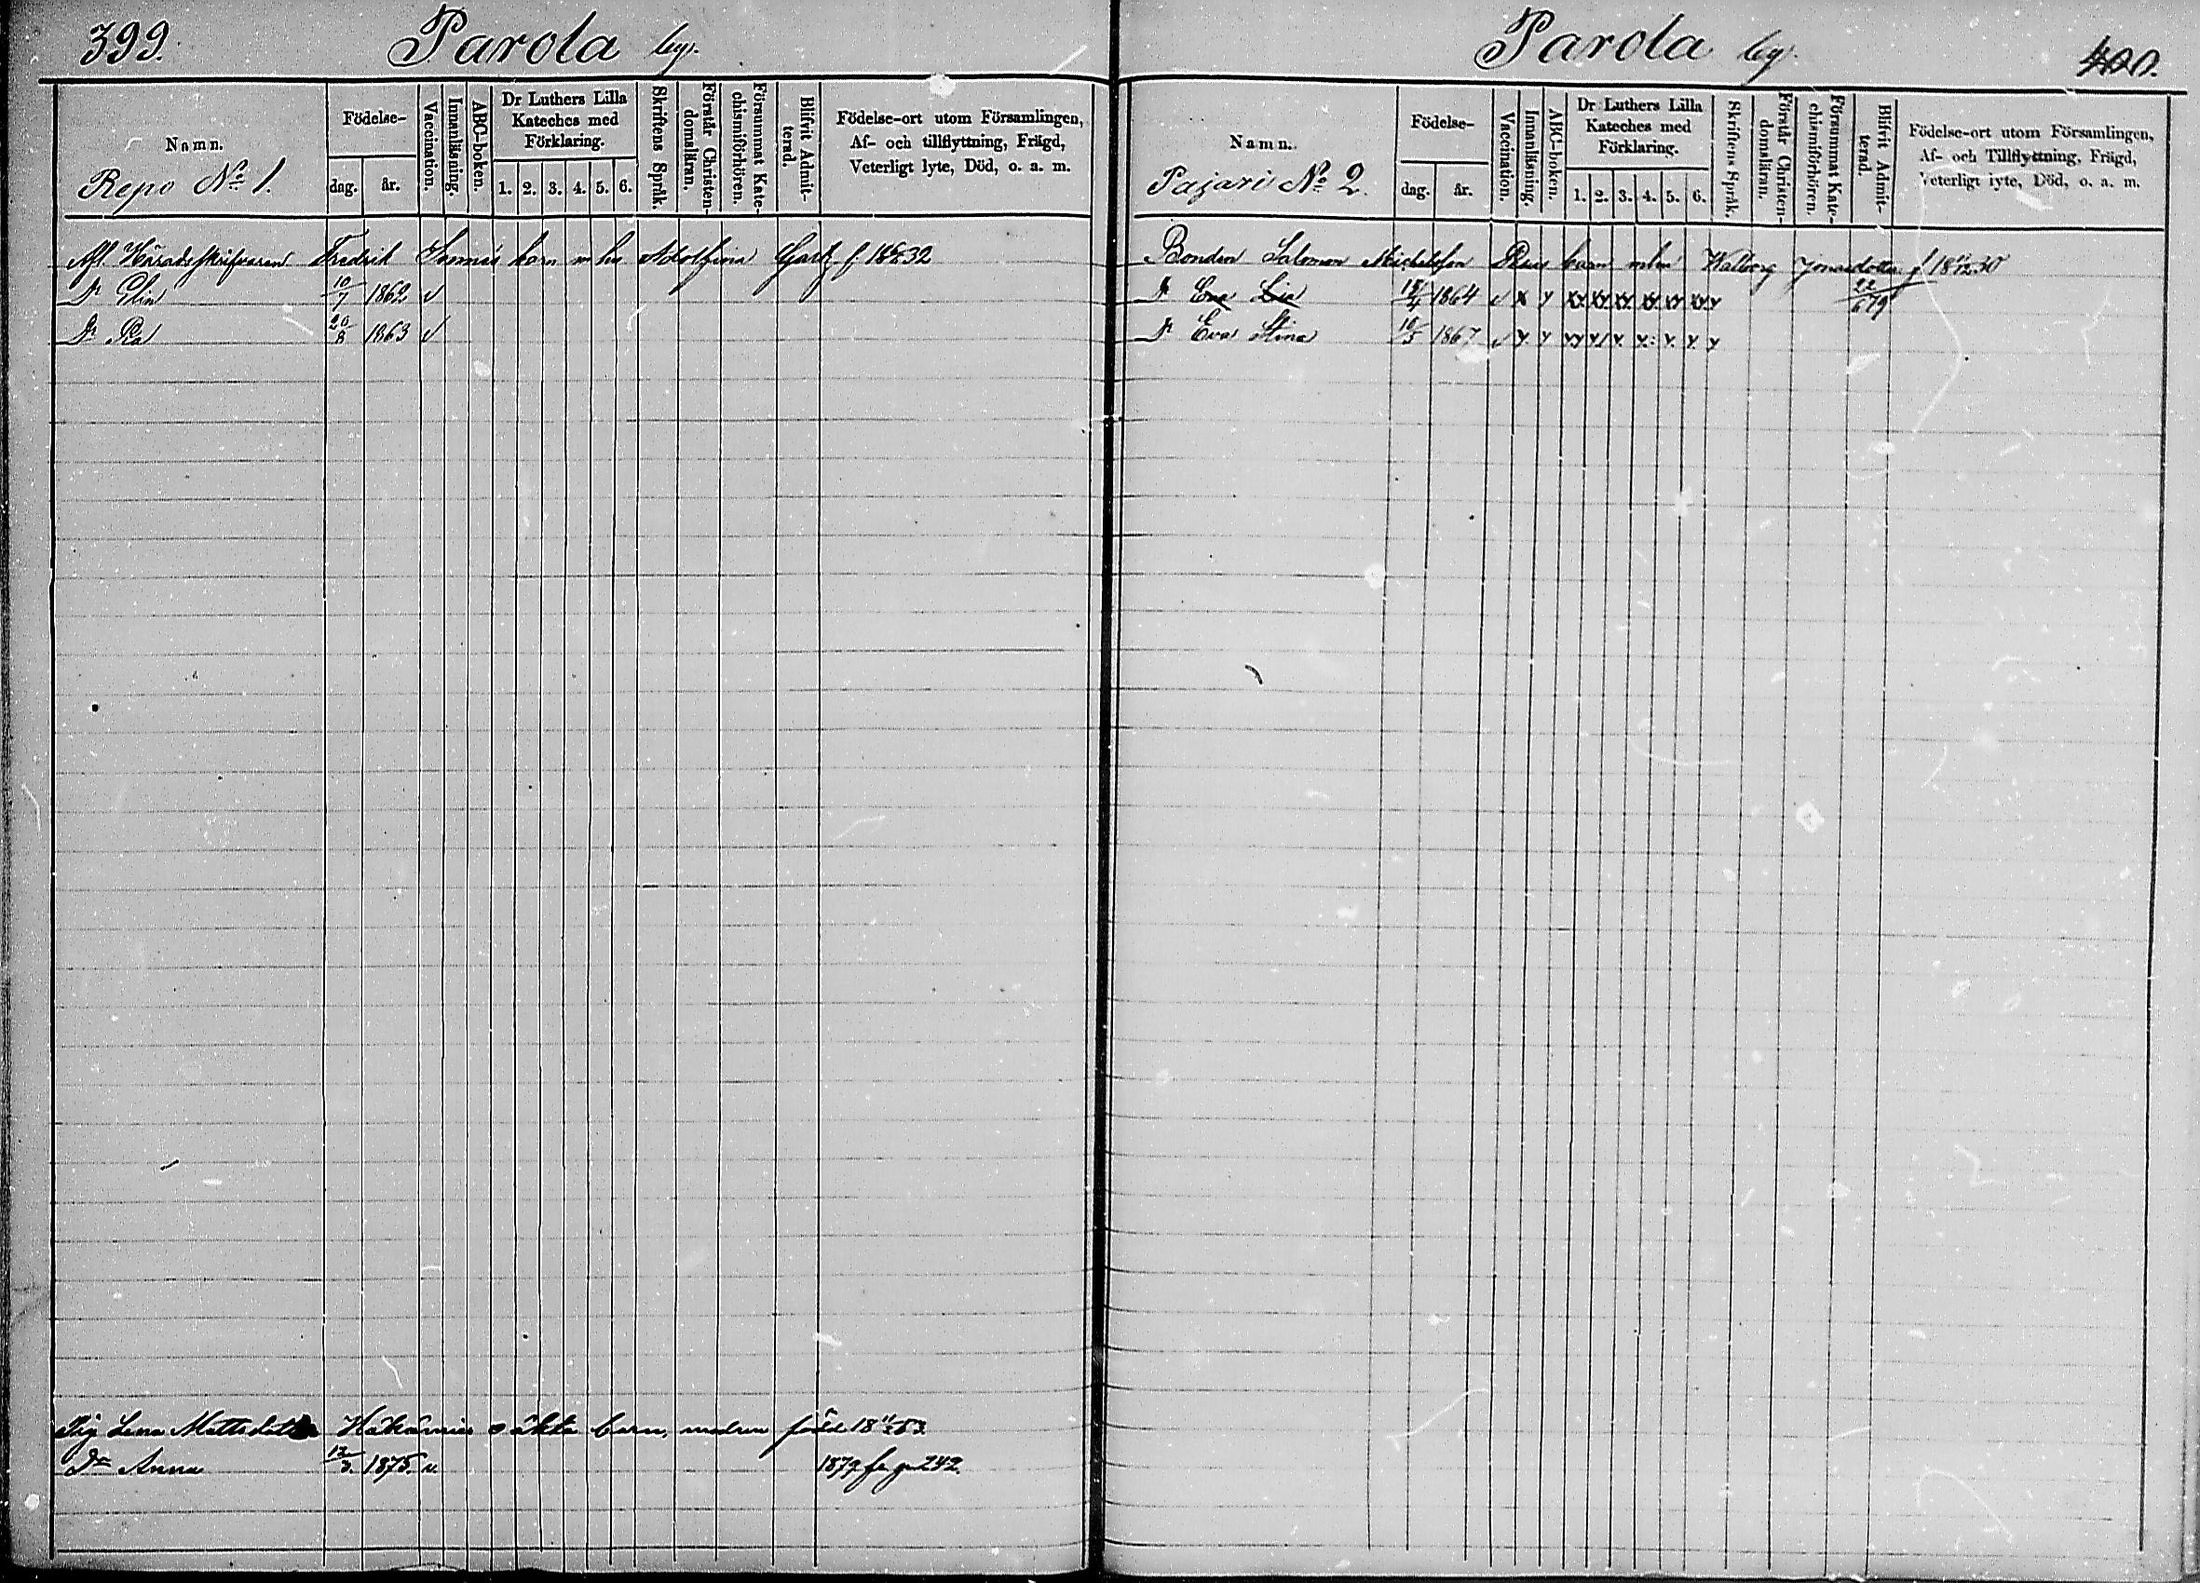 399.
Parola by.
Namn.
Repo No 1.
Födelse-
dag.
år.
Vaccination.
Innanläsning.
ABC-boken.
Dr Luthers Lilla
Kateches med
Förklaring.
1. 2. 3. 4. 5. 6.
Skriftens Språk.
Förstår Christen-
domsläran.
Försummat Kate-
chismiförhören.
Blifvit Admit-
terad.
Födelse-ort utom Församlingen,
Af- och tillflyttning, Frägd,
Veterligt lyte, Död, o. a. m.
Afl. Häradsskrifvaren Fredrik barn m hu Adolfina f. 32
Dr Elin 10/7 1862 v
Dr 20/8 1863 v
Pig Lena Mattsdotter oäkta barn, modren född 18 53
Dr Anna 12/3 1875. v. 1879 242.
Parola by.
400.
Namn.
Pajari No 2.
Födelse-
dag.
år.
Vaccination.
Innanläsning.
ABC-boken.
Dr Luthers Lilla
Kateches med
Förklaring.
1. 2. 3. 4. 5. 6.
Skriftens Språk.
Förstår Christen-
domsläran.
Försummat Kate-
chismiförhören.
Blifvit Admit-
terad.
Födelse-ort utom Församlingen,
Af- och Tillflyttning, Frägd,
Veterligt lyte, Död, o. a. m.
Bonden Salomon Michelsson barn Walborg Jonasdotter f 30
Dr 1864 v x y 22/6 79
Dr Eva Stina 10/5 1867 v